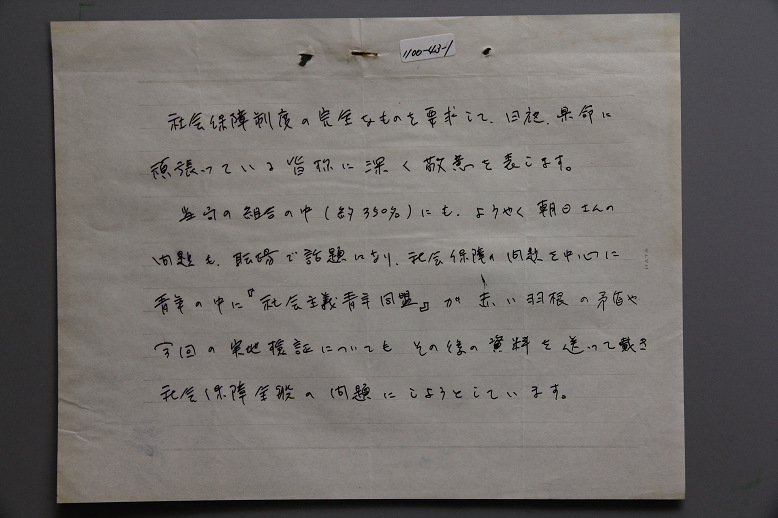 1100-43-1
社会保障制度の完全なものを要求して、日夜、懸命に
頑張っている皆様に深く敬意を表します。
当局の組合の中(約350名)にも、ようやく朝日さんの
問題も、職場で話題になり、社会保障の問題を中心に
青年の中に『社会主義青年同盟』が赤い羽根の矛盾や
今回の実地検証についてもその後の資料を送って戴き
社会保障全般の問題にしようとしています。